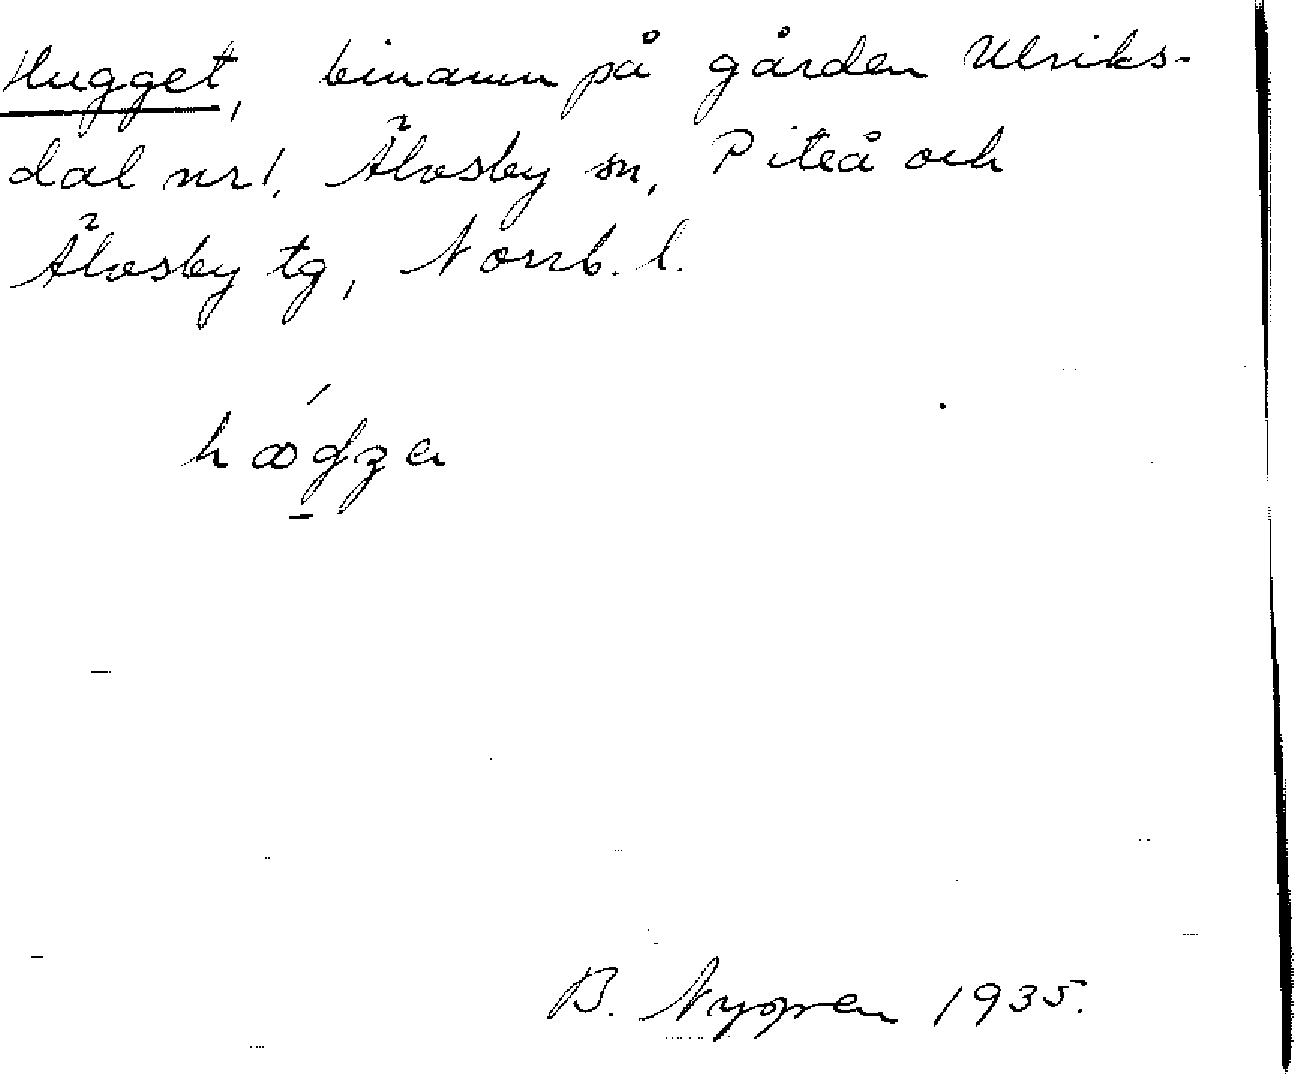 Hugget, binamn på gården Ulriks-
dal nr 1, Älvsby sn, Piteå och
Älvsby tg, Norrb. l.
B. Nygren 1935.